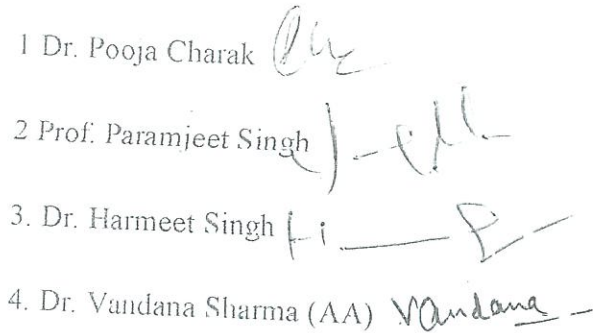 1 Dr. Pooja Charak
2 Prof. Paramjeet Singh
3. Dr. Harmeet Singh
4. Dr. Vandana Sharma (AA) Vandana